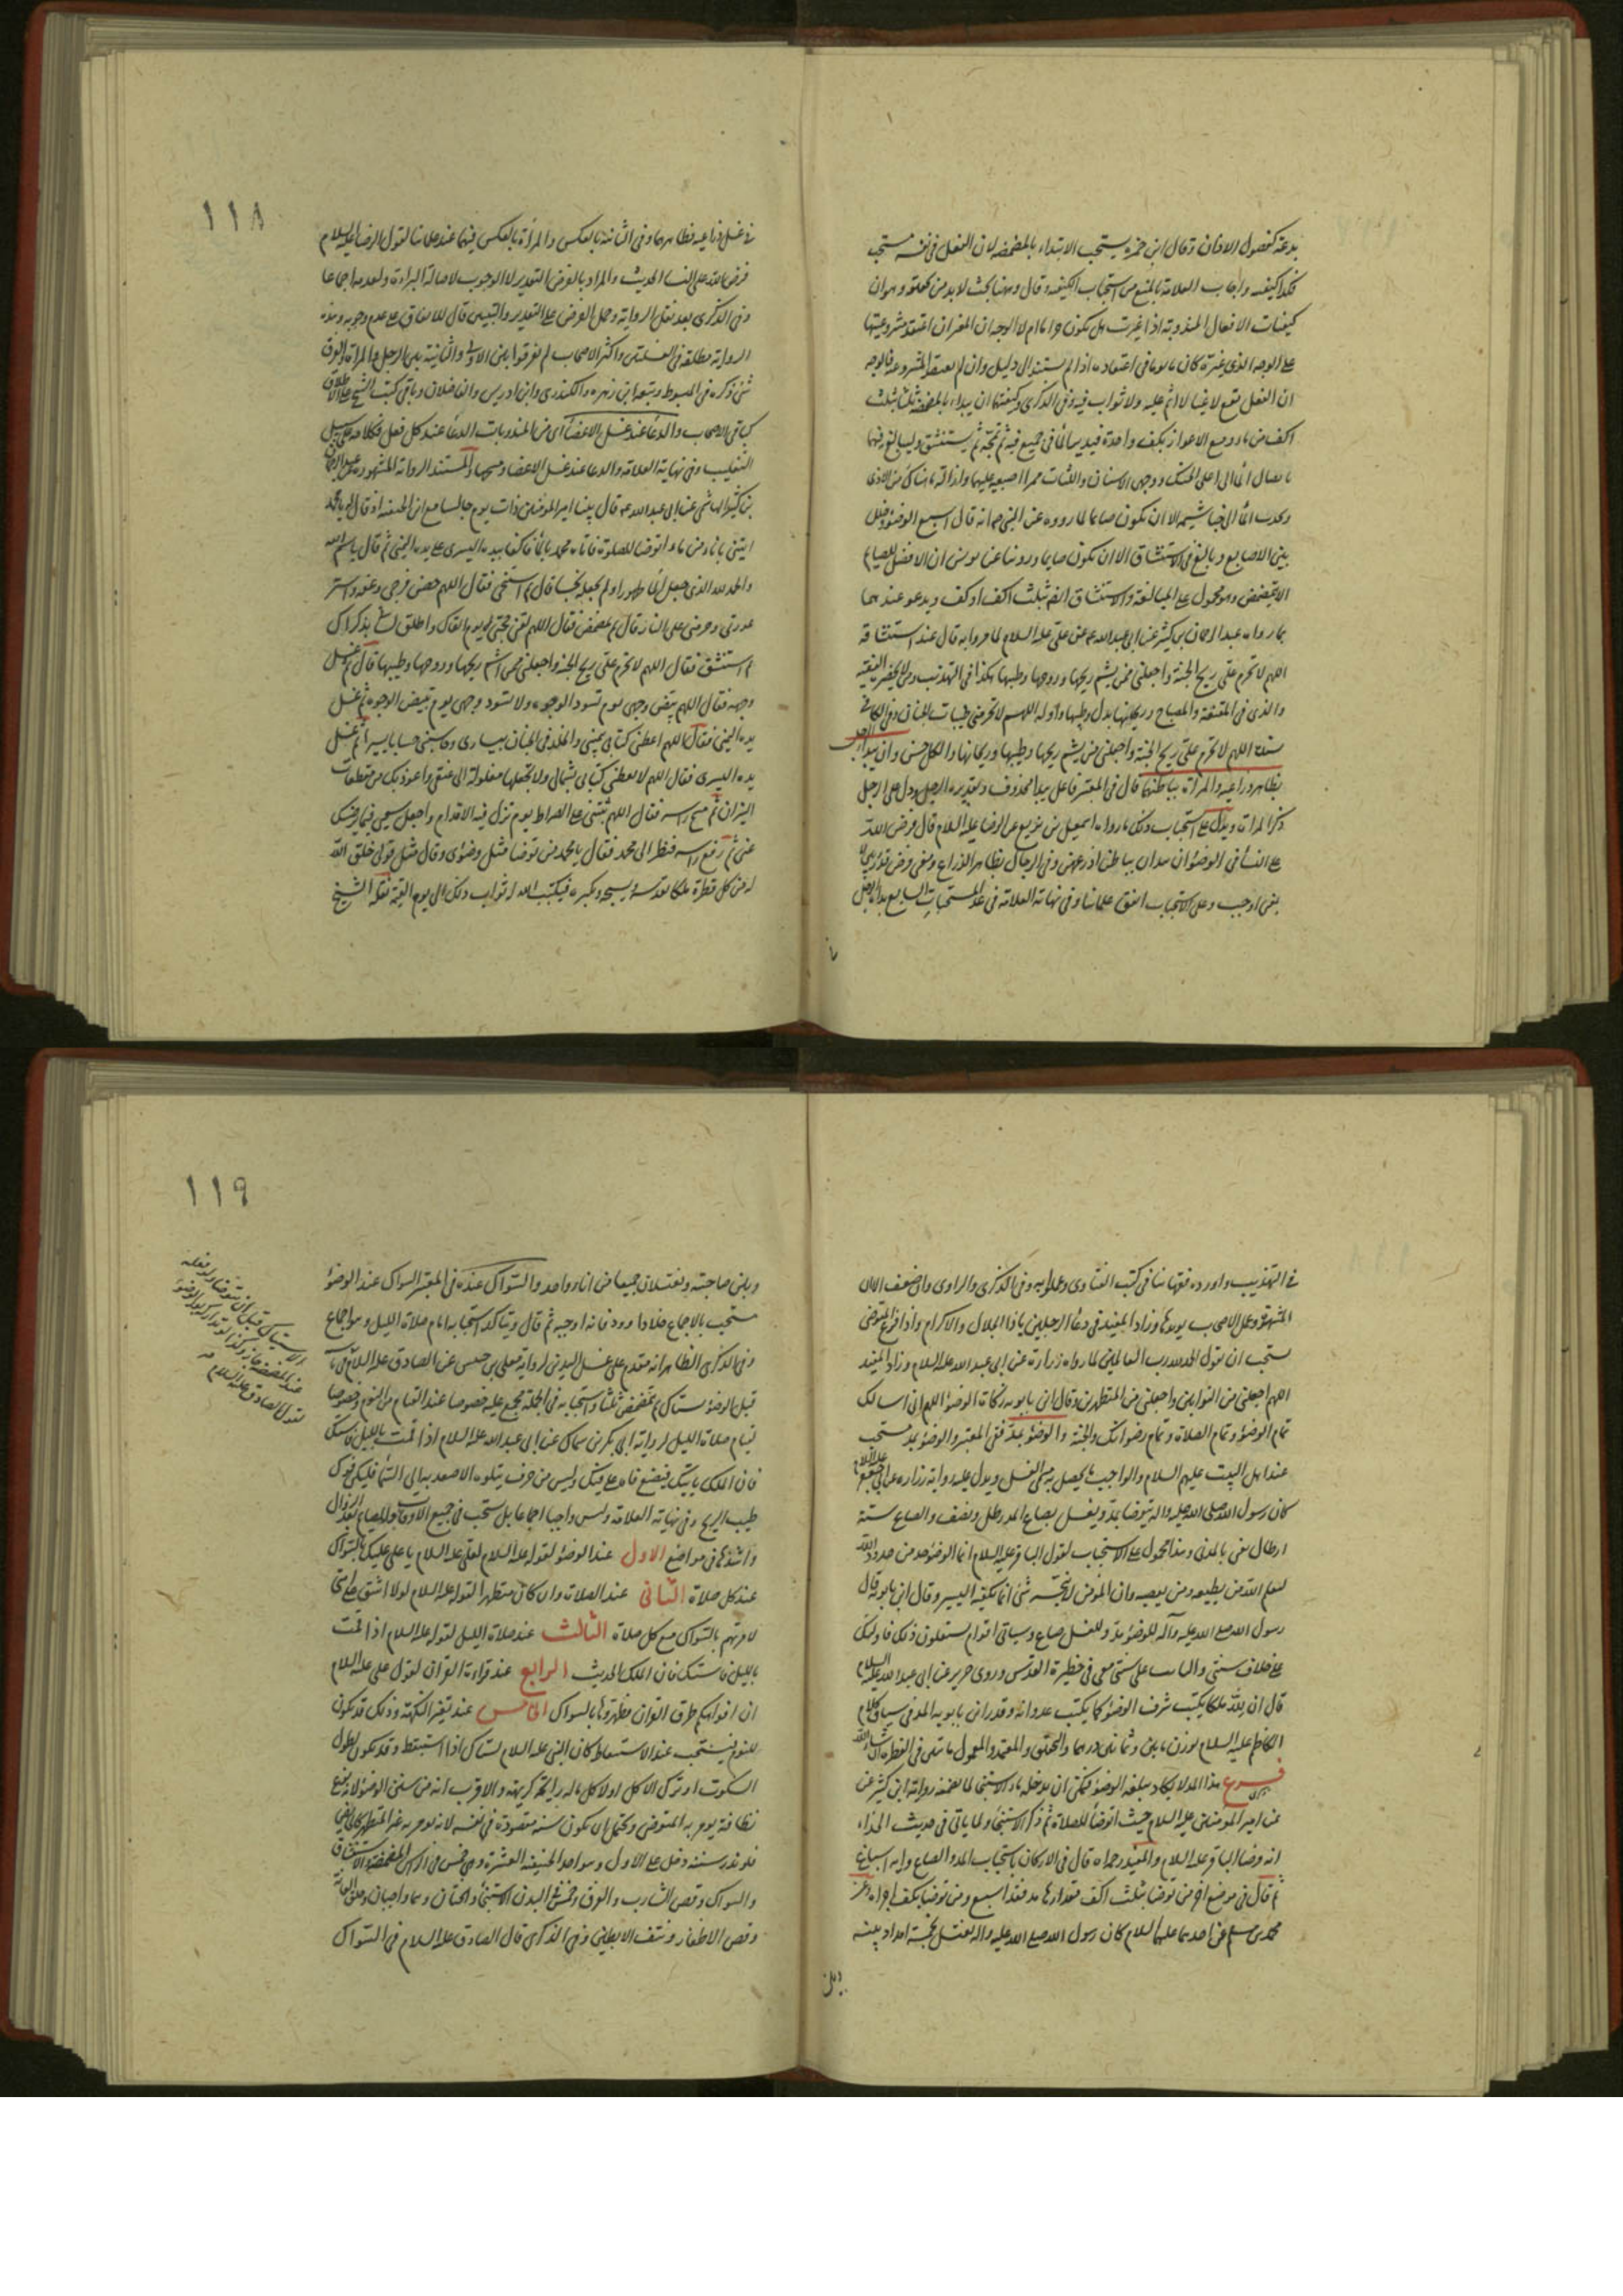 بدعة كفصول الاذان وقال ابن حمزة يستحب الابتداء بالمضمضة لان الفعل فى نفسه مستحب
فكذا كيفيته واجاب العلامة بالمنع من استحباب الكيفية وقال وهنا بحث لا بد من تحقيقه وهو ان
كيفيات الافعال المندوبة اذا غيرت هل يكون حراما ام لا الوجه ان المغير ان اعتقد مشروعيتها
على الوجه الذى غيره كان ماثوما فى اعتقاده اذا لم يستند الى دليل وان لم يعتقد المشروعية فالوجه
ان الفعل يقع لاغيا لا اثم عليه ولا ثواب فيه وفى الذكرى وكيفيتها ان يبداء بالمضمضة ثلثا بثلث
اكف من ماء ومع الاعواز بكف واحدة فيدير الماء فى جميع فيه ثم يمجّه ثم يستنشق وليبالغ فيهما
بايصال الماء الى اعلى الحنك ووجهى الاسنان واللثات ممرا اصبعيه عليهما وازالة ما هناك من الاذى
ويجذب الماء الى خياشيمه الا ان يكون صايما لما روى عن النبى ص انه قال اسبغ الوضوء وخلل
بين الاصابع وبالغ فى الاستنشاق الا ان يكون صايما وروينا عن يونس ان الافضل للصيام
الا يتمضمض وهو محمول على المبالغة والاستنشاق ايضا بثلث اكف او كف ويدعو عندهما
بما رواه عبد الرحمان بن كثير عن ابى عبد الله ع عن على عليه السلام لما مر وانه قال عند استنشاقه
اللهم لا تحرم على ريح الجنة واجعلنى ممن يشم ريحها وروحها وطيبها هكذا فى التهذيب ومن لا يحضره الفقيه
والذى فى المقنعة والمصباح وريحانها بدل وطيبها واوله اللهم لا تحرمنى طيبات الجنان وفى الكافى
اللهم لا تحرم على ريح الجنة واجعلنى ممن يشم ريحها وطيبها وريحانها والكل حسن وان يبدا الرجل
بظاهر ذراعيه والمراة بباطنهما قال فى المعتبر فاعل يبدا محذوف وتقديره الرجل ودل على الرجل
ذكر المراة ويدل على استحباب ذلك ما رواه اسمعيل بن بزيع عن الرضا عليه السلام قال فرض الله
على النساء فى الوضوء ان يبدان بباطن اذرعهن وفى الرجال بظاهر الذراع ومعنى فرض قدر لا
بمعنى اوجب وعلى الاستحباب اتفق علمائنا وفى نهاية العلامة فى عد المستحبات السابع بدأة الرجل
١١٨
فى غسل ذراعيه بظاهرهما وفى الثانية بالعكس والمراة بالعكس فيهما عند علمائنا لقول الرضا عليه السلام
فرض الله على النساء الحديث والمراد بالفرض التقدير لا الوجوب لاصالة البراءة ولعدمه اجماعا
وفى الذكرى بعد نقل الرواية وحمل الفرض على التقدير والتبيين قال للاتفاق على عدم وجوبه وهذه
الرواية مطلقة فى الغسلتين واكثر الاصحاب لم يفرقوا بين الاولى والثانية بين الرجل والمراة والفرق
شئ ذكره فى المبسوط وتبعه ابن زهره والكندرى وابن ادريس والفاضلان وباقى كتب الشيخ على الاطلاق
كباقى الاصحاب والدعاء عند غسل الاعضاء اى من المندوبات الدعاء عند كل فعل فكلامه على سبيل
التغليب وفى نهاية العلامة والدعا عند غسل الاعضاء ومسحها والمستند الرواية المشهورة عن عبد الرحمان
بن كثير الهاشمى عن ابى عبد الله ع قال بينا امير المؤمنين ذات يوم جالسا مع ابن الحنفية اذ قال له يا محمد
ايتنى باناء من ماء اتوضا للصلوة فاتاه محمد بالماء فاكفا بيده اليسرى على يده اليمنى ثم قال بسم الله
والحمد لله الذى جعل الماء طهورا ولم يجعله نجسا قال ثم استنجى فقال اللهم حصن فرجى واعفه واستر
عورتى وحرمنى على النار قال ثم تمضمض فقال اللهم لقنى حجتى يوم القاك واطلق لسانى بذكراك
ثم استنشق فقال اللهم لا تحرم على ريح الجنة واجعلنى ممن يشم ريحها وروحها وطيبها قال ثم غسل
وجهه فقال اللهم بيض وجهى يوم تسود الوجوه ولا تسود وجهى يوم تبيض الوجوه ثم غسل
يده اليمنى فقال اللهم اعطنى كتابى بيمينى والخلد فى الجنان بيسارى وحاسبنى حسابا يسيرا ثم غسل
يده اليسرى فقال اللهم لا تعطنى كتابى بشمالى ولا تجعلها مغلولة الى عنقى واعوذ بك من مقطعات
النيران ثم مسح راسه فقال اللهم ثبتنى على الصراط يوم تزل فيه الاقدام واجعل سعيى فيما يرضيك
عنى ثم رفع راسه فنظر الى محمد فقال يا محمد من توضا مثل وضوئى وقال مثل قولى خلق الله
له من كل قطرة ملكا يقدسه ويسبحه ويكبره فيكتب الله له ثواب ذلك الى يوم القيمة نقله الشيخ
فى التهذيب واورده فقهائنا فى كتب الفتاوى وعملوا به وفى الذكرى والراوى وان ضعف الا ان
الشهرة وعمل الاصحاب يويدها وزاد المفيد فى دعاء الرجلين يا ذا الجلال والاكرام واذا فرغ المتوضى
يستحب ان يقول الحمد لله رب العالمين لما رواه زرارة عن ابى عبد الله عليه السلام وزاد المفيد
اللهم اجعلنى من التوابين واجعلنى من المتطهرين وقال ابن بابويه زكاة الوضوء اللهم انى اسالك
تمام الوضوء وتمام الصلاة وتمام رضوانك والجنة والوضوء بمدّ ففى المعتبر والوضوء بمد مستحب
عند اهل البيت عليهم السلام والواجب ما يحصل به مسمى الغسل ويدل عليه رواية زرارة عن ابى جعفر عليه السلام
كان رسول الله صلى الله عليه واله يتوضا بمد ويغسل بصاع المد رطل ونصف والصاع ستة
ارطال يعنى بالمدنى وهذا محمول على الاستحباب لقول الباقر عليه السلام انما الوضوء حد من حدود الله
ليعلم الله من يطيعه ومن يعصيه وان المؤمن لا ينجّسه شئ انما يكفيه اليسير وقال ابن بابويه قال
رسول الله صلى الله عليه وآله للوضوء مد وللغسل صاع وسياتى اقوام يستقلون ذلك فاولئك
على خلاف سنتى والثابت على سنتى معى فى حظيرة القدس وروى حريز عن ابى عبد الله عليه السلام
قال ان لله ملكا يكتب سرف الوضوء كما يكتب عدوانه وقدر ابن بابويه المد فى سياق كلام
الكاظم عليه السلام بوزن مايتين وثمانين درهما والتحقيق والمعتمد والمعمول ما ياتى فى الفطرة ان شاء الله
فرع هذا المد لا يكاد يبلغه الوضوء فيمكن ان يدخله ماء الاستنجا لما تضمنه رواية ابن كثير عن
عن امير المؤمنين عليه السلام حيث اتوضا للصلاة ثم ذكر الاستنجاء ولما ياتى فى حديث الحذاء
انه وضا الباقر عليه السلام والمفيد رحمه الله قال فى الاركان باستحباب المد والصاع وانه اسباغ
ثم قال فى موضع اخر من توضا بثلث اكف مقدارها مد فقد اسبغ ومن توضا بكف اجزاه وعن
محمد بن مسلم عن احدهما عليهما السلام كان رسول الله صلى الله عليه واله يغتسل بخمسة امداد بينه
وبين
١١٩
وبين صاحبته ويغتسلان جميعا من اناء واحد والسّواك عنده فى المعتبر السواك عند الوضوء
مستحب بالاجماع خلافا لداود فانه اوجبه ثم قال ويتاكد استحبابه امام صلاة الليل وهو اجماع
وفى الذكرى الظاهر انه مقدم على غسل اليدين لرواية معلى بن خنيس عن الصادق عليه السلام
قبل الوضوء يستاك ثم يتمضمض ثلثا واستحبابه فى الجملة مجمع عليه خصوصا عند القيام من النوم وخصوصا
قيام صلاة الليل لرواية ابى بكر بن سماك عن ابى عبد الله عليه السلام اذا قمت بالليل فاستك
فان الملك ياتيك فيضع فاه على فيك وليس من حرف يتلوه الا صعد به الى السماء فليكن فوك
طيب الريح وفى نهاية العلامة وليس واجبا اجماعا بل مستحب فى جميع الاوقات وللصيام بعد الزوال
واشدّها فى مواضع الاول عند الوضوء لقوله عليه السلام لعلى عليه السلام يا على عليك بالسواك
عند كل صلاة الثانى عند الصلاة وان كان متطهرا لقوله عليه السلام لولا اشق على امتى
لامرتهم بالسّواك مع كل صلاة الثالث عند صلاة الليل لقوله عليه السلام اذا قمت
بالليل فاستك فان الملك الحديث الرابع عند قراءة القران لقول على عليه السلام
ان افواهكم طرق القران فطهروها بالسواك الخامس عند تغير النكهة وذلك قد يكون
للنوم فيستحب عند الاستيقاظ كان النبى عليه السلام يستاك اذا استيقظ وقد يكون لطول
السكوت او ترك الاكل او لاكل ما له رائحة كريهة والاقرب انه من سنن الوضوء لانه نوع
نظافة يومر به المتوضى ويحتمل ان يكون سنة مقصودة فى نفسه لانه يومر به غير المتطهر كالحايض
فلو نذر سننه دخل على الاول وهو احد الحنيفية العشرة وهى خمس فى الراس المضمضة والاستنشاق
والسواك وقص الشارب والفرق وخمس فى البدن الاستنجاء والختان وهما واجبان وحلق العانة
وقص الاظفار ونتف الابطين وفى الذكرى قال الصادق عليه السلام فى السّواك
الاستياك قبل ان يتوضا ولو فعله
عند المضمضة جاز وكذا لو تداركه بعد الوضوء
لقول الصادق عليه السلام